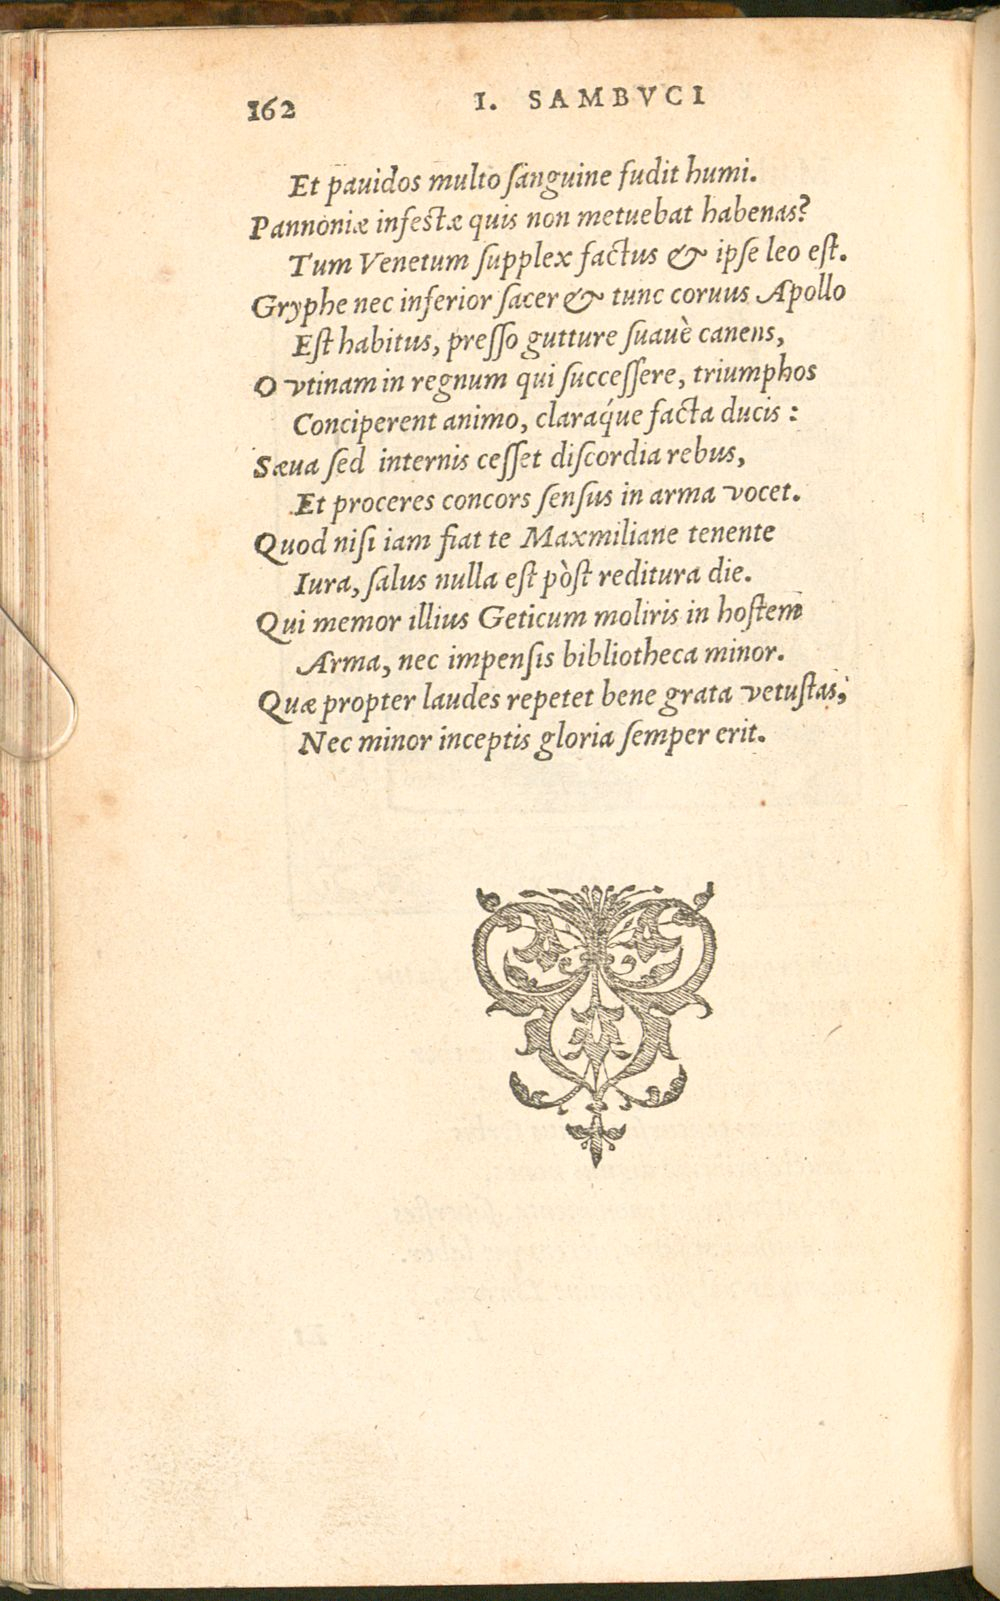 162 I. SAMBVCI
Et pauidos multo ſanguine fudit humi.
Pannoniæ infestæ quis non metuebat habenas?
Tum Venetum ſupplex factus & ipſe leo eſt.
Gryphe nec inferior ſacer & tunc coruus Apollo
Eſt habitus, preſſo gutture ſuauè canens,
O vtinam in regnum qui ſucceſſere, triumphos
Conciperent animo, claraq́ue facta ducis:
Sæua ſed internis ceſſet diſcordia rebus,
Et proceres concors ſenſus in arma vocet.
Quod niſi iam fiat te Maxmiliane tenente
Iura, ſalus nulla eſt pòſt reditura die.
Qui memor illius Geticum moliris in hoſtem
Arma, nec impenſis bibliotheca minor.
Quæ propter laudes repetet bene grata vetuſtas,
Nec minor inceptis gloria ſemper erit.